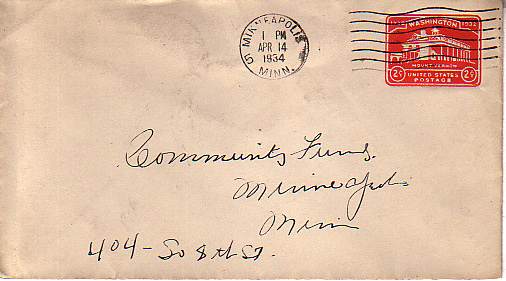 MINNEAPOLIS
1 PM
APR 14
1934
5 MINN.
WASHINGTON 1932
MOUNT VERNON
2¢ UNITED STATES 2¢
POSTAGE
Community Fund.
Minneapolis
Minn
404 - So 8th St.